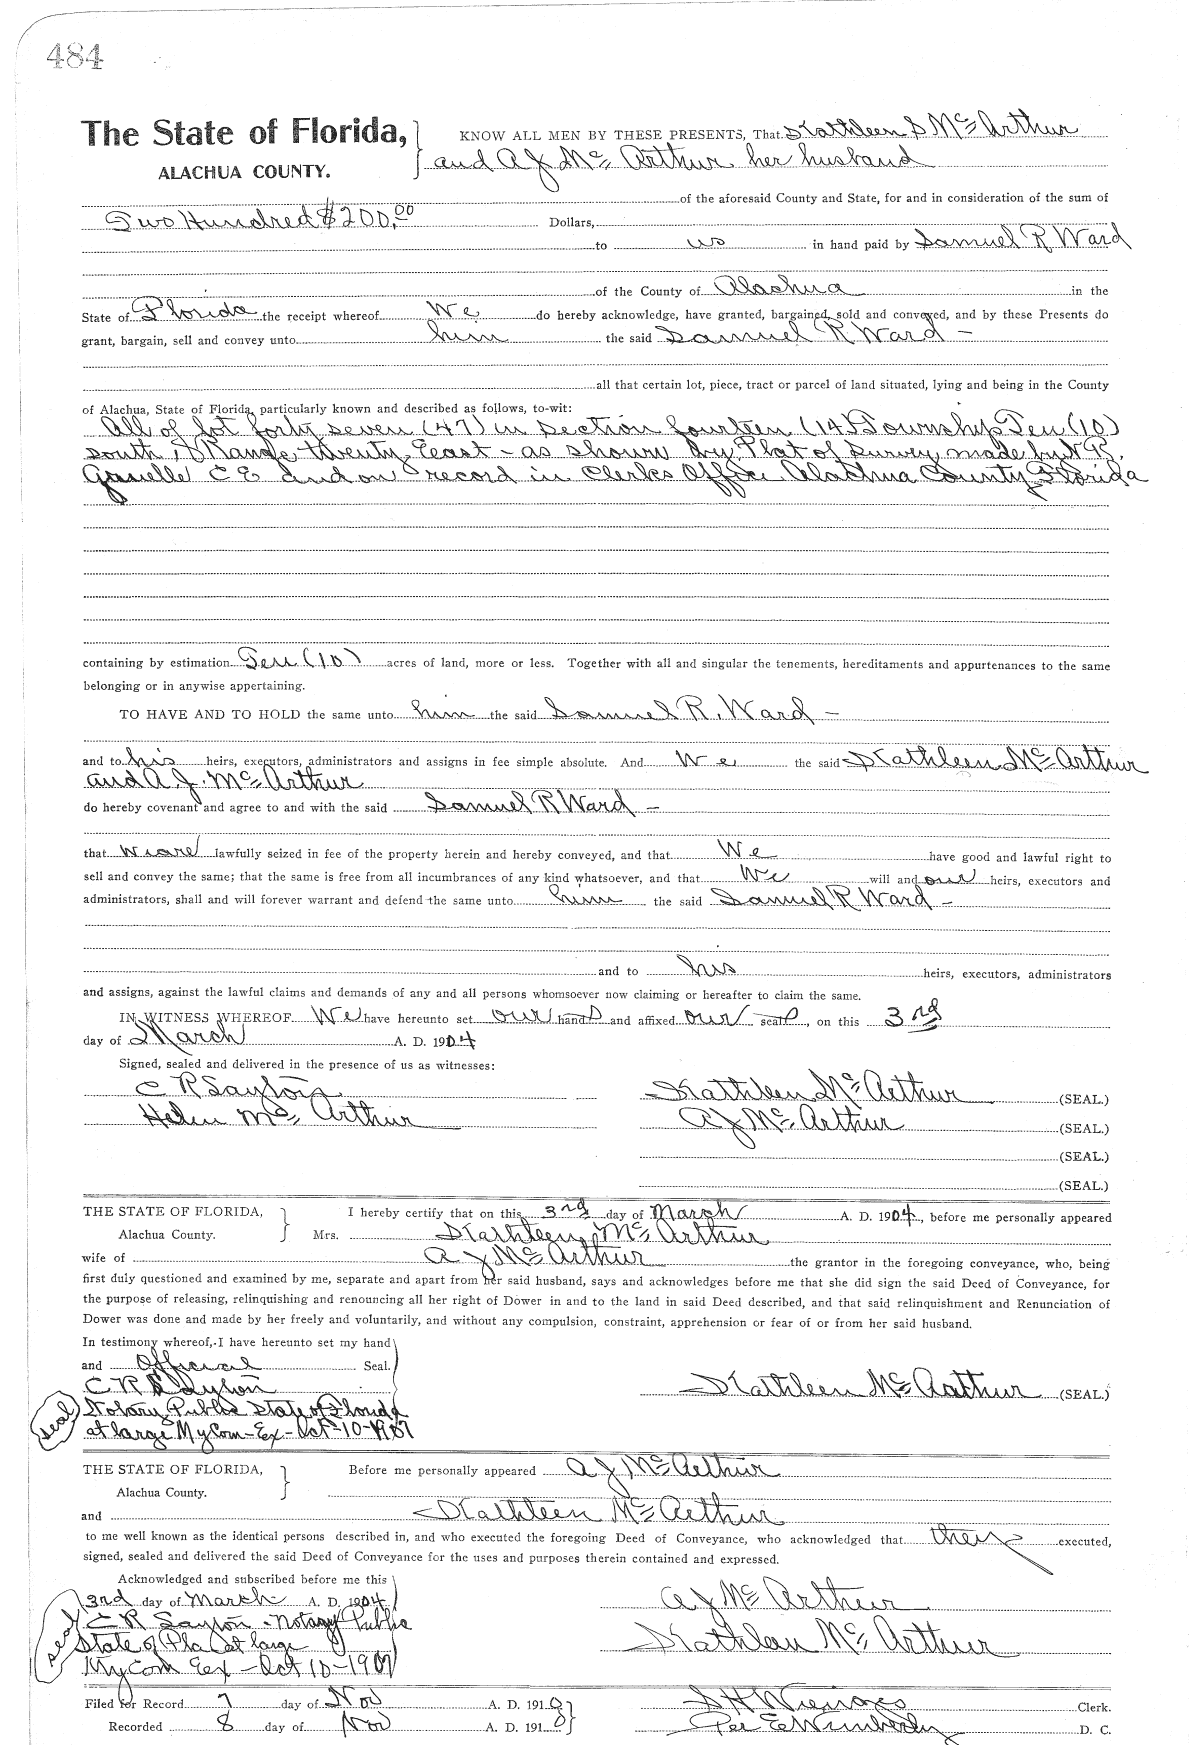 484
The State of Florida,
ALACHUA COUNTY.
KNOW ALL MEN BY THESE PRESENTS, That Kathleen S McArthur
and A J McArthur her husband
of the aforesaid County and State, for and in consideration of the sum of
Two Hundred $200.00 Dollars,
to us in hand paid by Samuel R Ward
of the County of Alachua in the
State of Florida the receipt whereof We do hereby acknowledge, have granted, bargained, sold and conveyed, and by these Presents do
grant, bargain, sell and convey unto him the said Samuel R Ward -
all that certain lot, piece, tract or parcel of land situated, lying and being in the County
of Alachua, State of Florida, particularly known and described as follows, to-wit:
All of lot forty seven (47) in section fourteen (14) Township Ten (10)
south, Range twenty East - as shown by Plat of survey made by
C E and on record in Clerks Office Alachua County Florida
containing by estimation Ten (10) acres of land, more or less. Together with all and singular the tenements, hereditaments and appurtenances to the same
belonging or in anywise appertaining.
TO HAVE AND TO HOLD the same unto him the said Samuel R. Ward -
and to his heirs, executors, administrators and assigns in fee simple absolute. And We the said Kathleen McArthur
and A. J. McArthur
do hereby covenant and agree to and with the said Samuel R Ward -
that we are lawfully seized in fee of the property herein and hereby conveyed, and that We have good and lawful right to
sell and convey the same; that the same is free from all incumbrances of any kind whatsoever, and that We will and our heirs, executors and
administrators, shall and will forever warrant and defend the same unto him the said Samuel R Ward -
and to his heirs, executors, administrators
and assigns, against the lawful claims and demands of any and all persons whomsoever now claiming or hereafter to claim the same.
IN WITNESS WHEREOF We have hereunto set our hands and affixed our seals, on this 3rd
day of March A. D. 1904
Signed, sealed and delivered in the presence of us as witnesses:
C R Kathleen McArthur (SEAL.)
Helen McArthur A J McArthur (SEAL.)
(SEAL.)
(SEAL.)
THE STATE OF FLORIDA,
Alachua County.
I hereby certify that on this 3rd day of March A. D. 1904, before me personally appeared
Mrs. Kathleen McArthur
wife of A J McArthur the grantor in the foregoing conveyance, who, being
first duly questioned and examined by me, separate and apart from her said husband, says and acknowledges before me that she did sign the said Deed of Conveyance, for
the purpose of releasing, relinquishing and renouncing all her right of Dower in and to the land in said Deed described, and that said relinquishment and Renunciation of
Dower was done and made by her freely and voluntarily, and without any compulsion, constraint, apprehension or fear of or from her said husband.
In testimony whereof, I have hereunto set my hand
and Official Seal.
C R Kathleen McArthur (SEAL.)
seal Notary Public State of Florida
at large My Com - Ex - Oct - 10 - 1907
THE STATE OF FLORIDA,
Alachua County.
Before me personally appeared A J McArthur
and Kathleen McArthur
to me well known as the identical persons described in, and who executed the foregoing Deed of Conveyance, who acknowledged that they executed,
signed, sealed and delivered the said Deed of Conveyance for the uses and purposes therein contained and expressed.
Acknowledged and subscribed before me this
3rd day of March A. D. 1904 A J McArthur
seal C R Notary Public
State of Fla at large Kathleen McArthur
My Com Ex - Oct 10 - 1907
Filed for Record 7 day of Nov A. D. 1910 S H Wienges Clerk.
Recorded 8 day of Nov A. D. 1910 Per E Wimberly D. C.